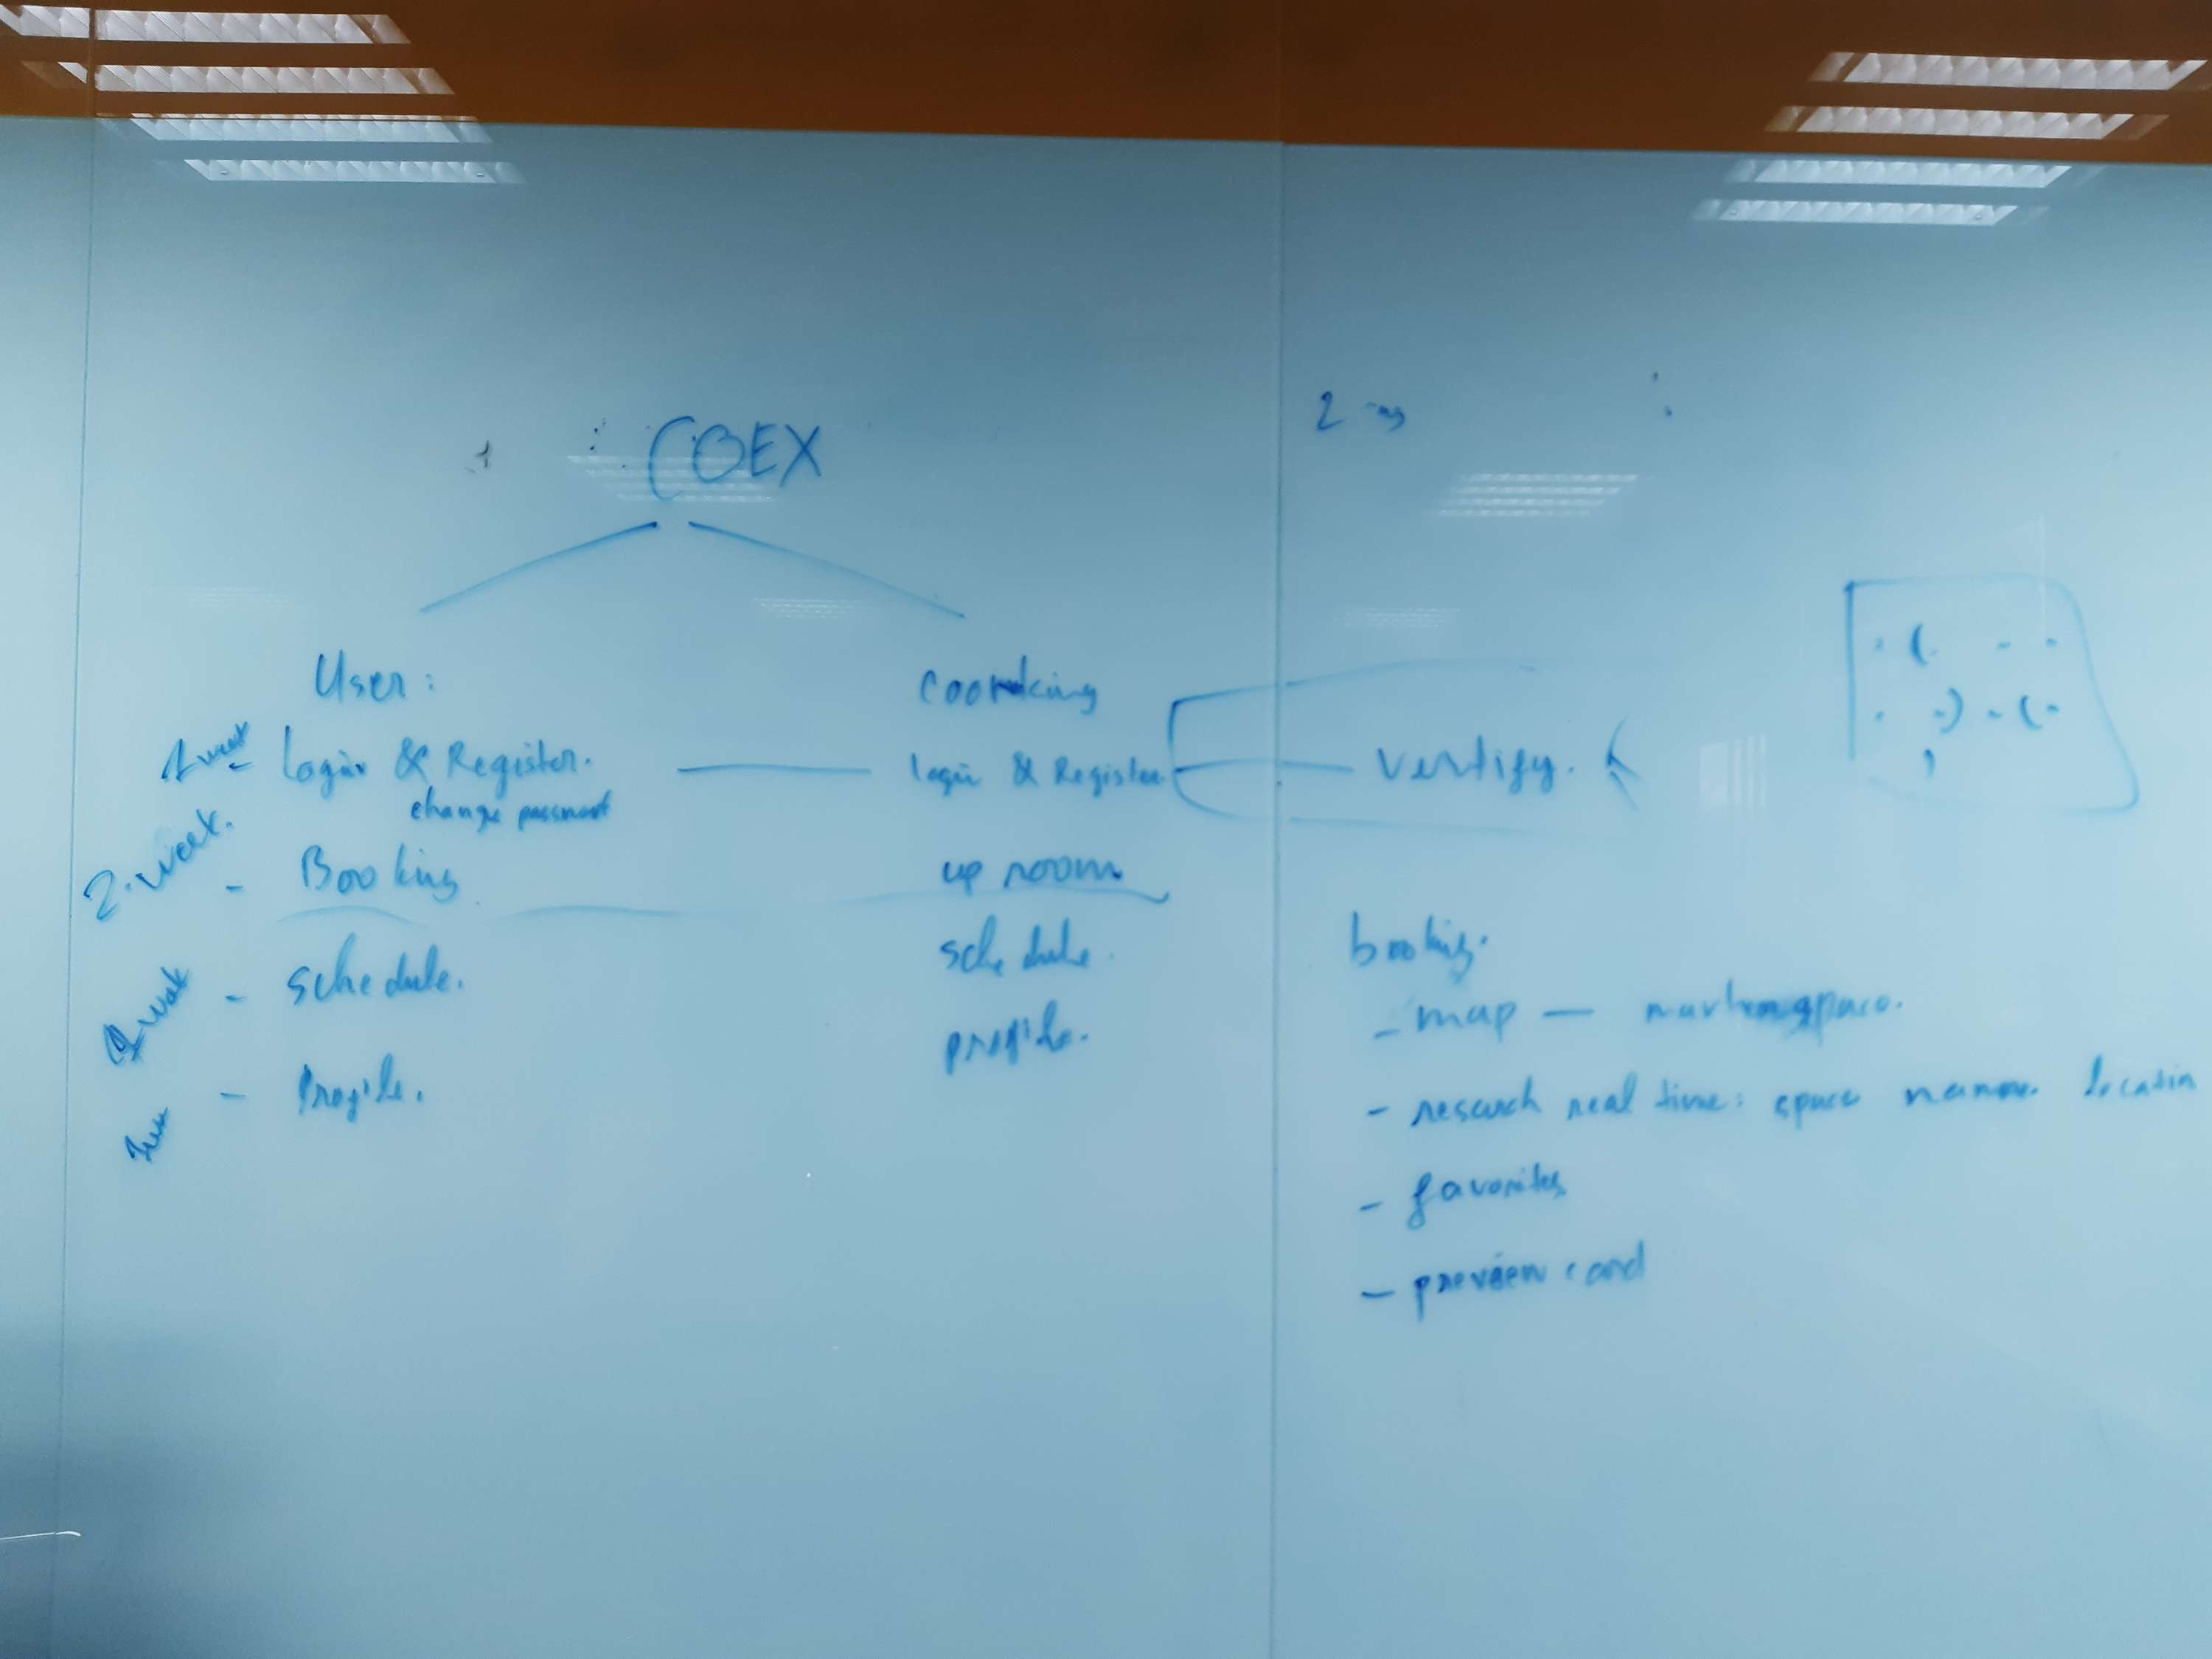 COEX
User :
1 week - Login & Register.
change password
2. week. - Booking
- Schedule.
- Profile.
login & Register
up room
schedule.
profile.
vertify.
booking.
- map —
- research real time : space name. location
- favorites
- preview card